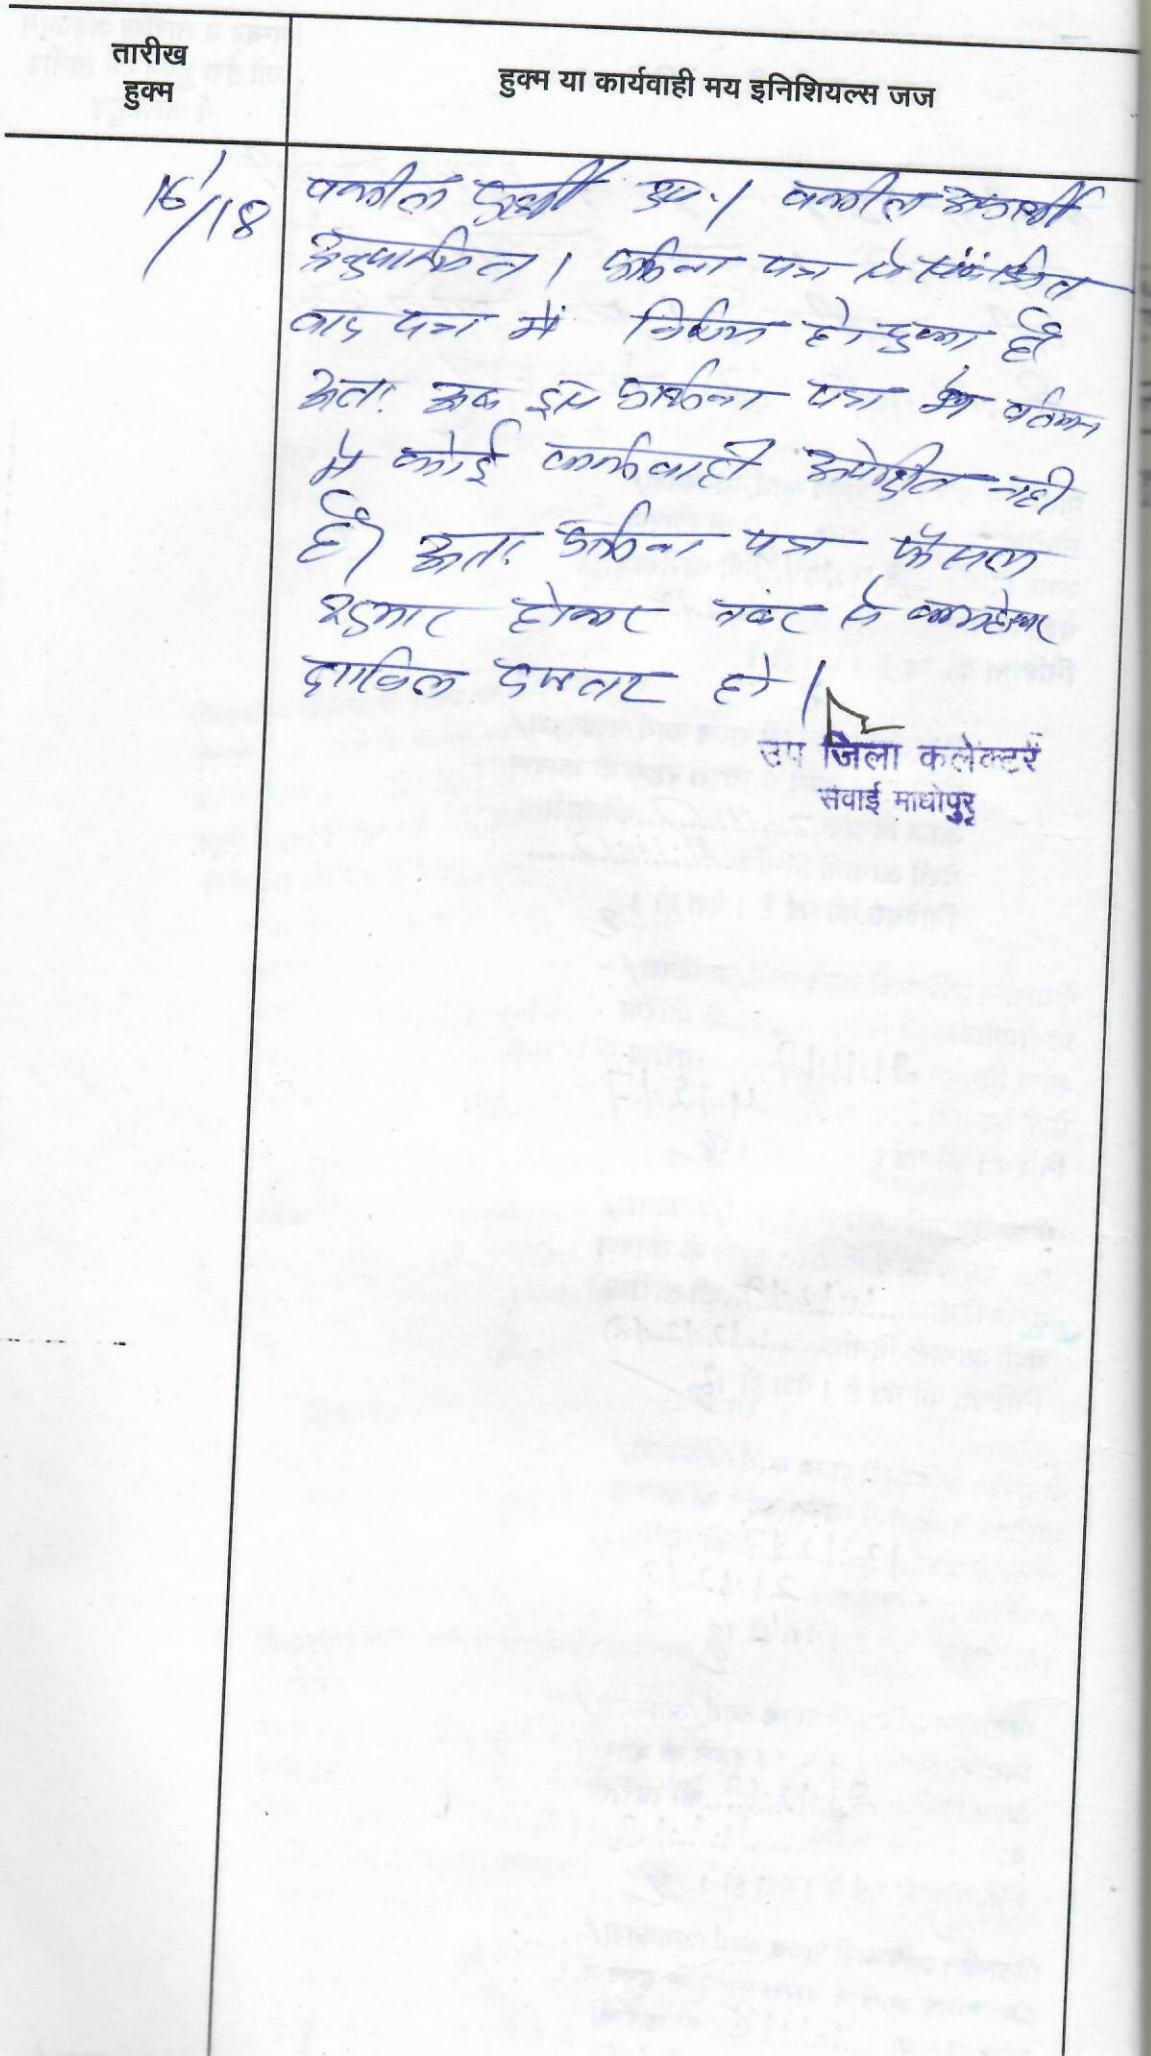 तारीख
हुक्म
हुक्म या कार्यवाही मय इनिशियल्स जज
16/1/18
वकील प्रार्थी उप.। वकील अप्रार्थी
अनुपस्थित। प्रार्थना पत्र से संबंधित
वाद पत्र में निर्णय हो चुका है।
अतः अब इस प्रार्थना पत्र में वर्तमान
में कोई कार्यवाही अपेक्षित नहीं
है। अतः प्रार्थना पत्र फैसल
शुमार होकर नंबर से कम होकर
दाखिल दफ्तर हो।
उप जिला कलेक्टर
सवाई माधोपुर